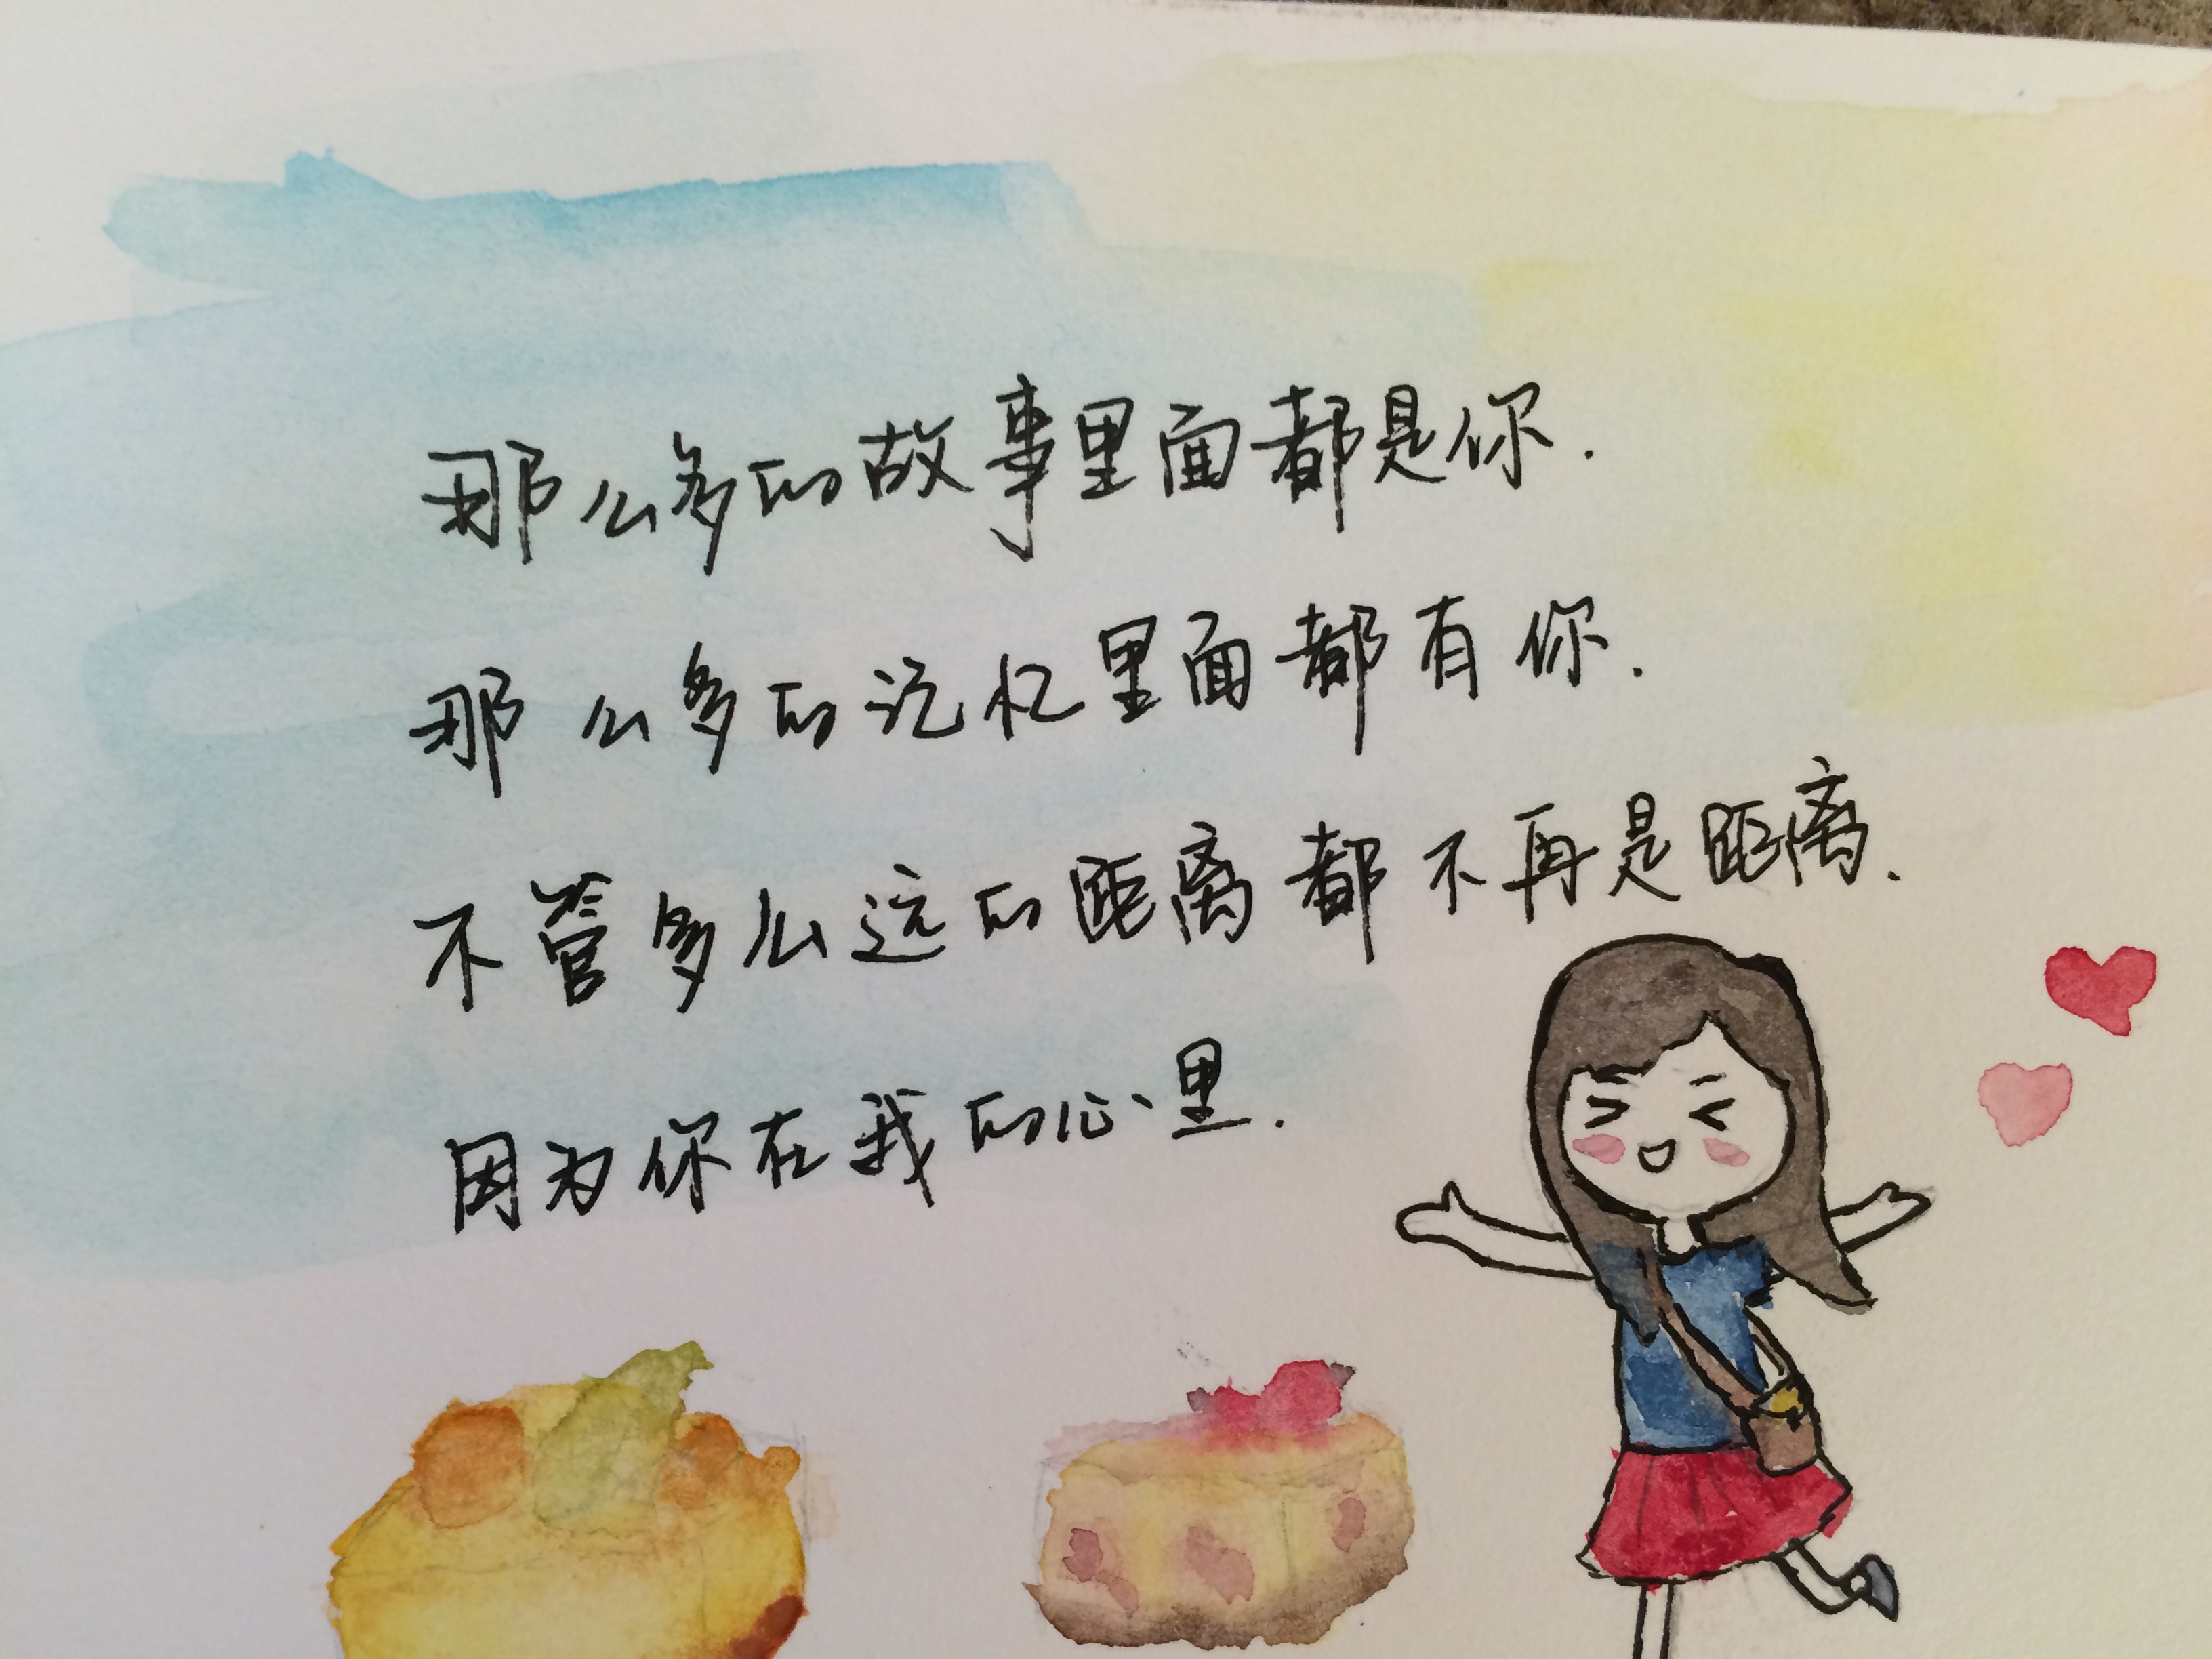 那么多的故事里面都是你.
那么多的记忆里面都有你.
不管多么远的距离都不再是距离.
因为你在我的心里.